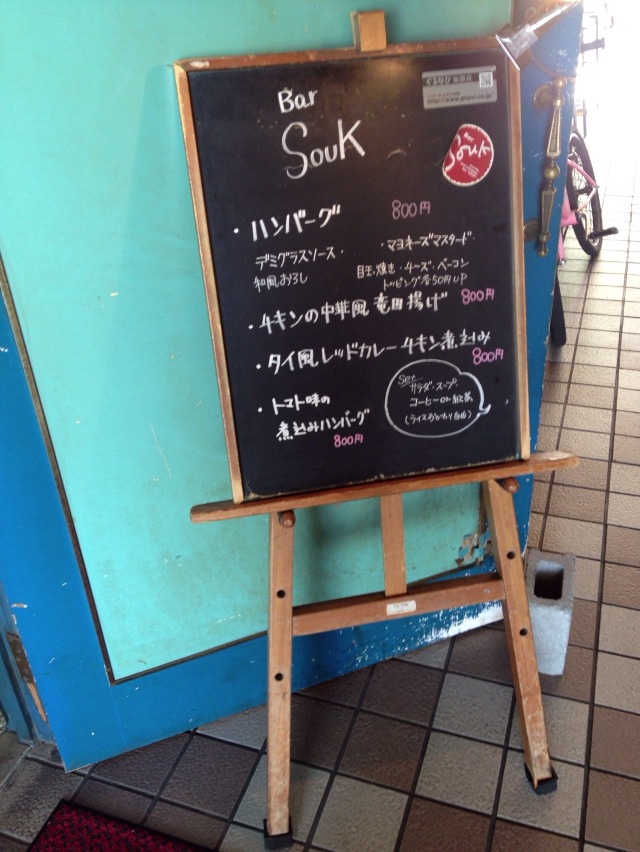 Bar
Souk
ぐるなび
http://www.gnavi.co.jp/
Souk
・ハンバーグ 800円
デミグラスソース・ ・マヨネーズマスタード・
和風おろし 目玉焼き・チーズ・ベーコン
トッピング各50円UP
・チキンの中華風竜田揚げ 800円
・タイ風レッドカレーチキン煮込み
800円
・トマト味の
煮込みハンバーグ
800円
Set
サラダ・スープ
コーヒーor紅茶
(ライスおかわり自由)